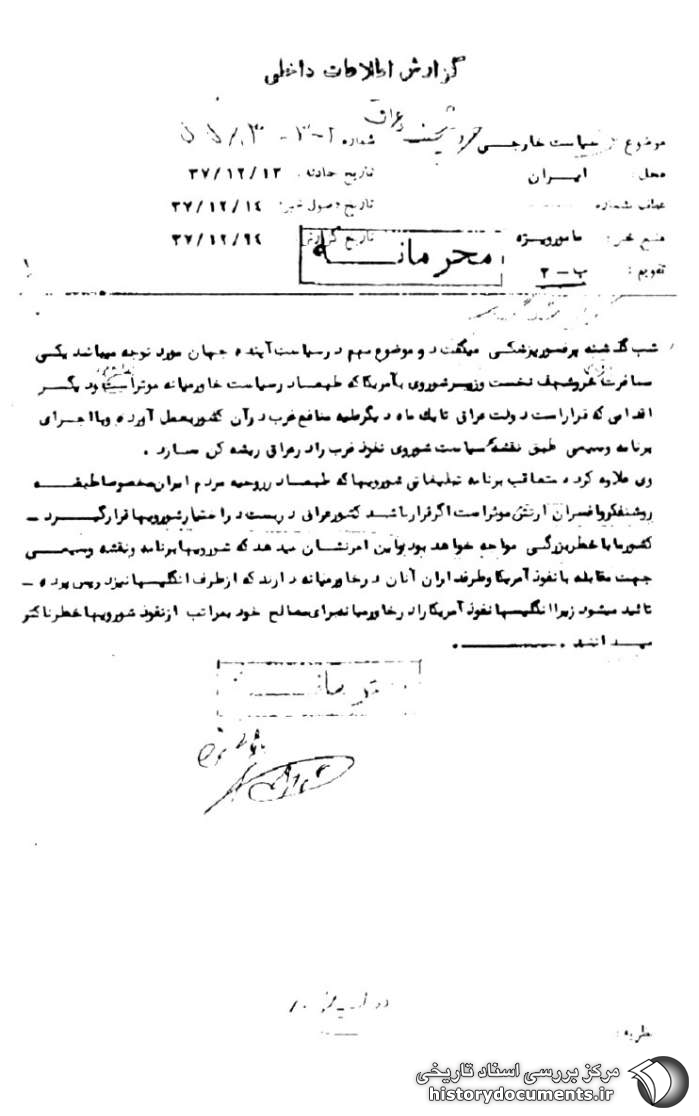 گزارش اطلاعات داخلی
موضوع : سیاست خارجی شماره
محل : ایران تاریخ حادثه : ۳۷/۱۲/۱۳
عطف بشماره تاریخ وصول خبر: ۳۷/۱۲/۱٤
منبع خبر : مامورویژه تاریخ گزارش ۳۷/۱۲/۲٤
محرمانه
تقویم : ب - ۲
شب گذشته پرفسورپزشکی میگفت دو موضوع مهم درسیاست آینده جهان مورد توجه میباشد یکی
مسافرت خروشچف نخست وزیرشوروی بآمریکا که طبعا در سیاست خاورمیانه موثر است ودیگر
اقدامی که قرار است دولت عراق تا یک ماه دیگرعلیه منافع غرب درآن کشوربعمل آورده وبا اجرای
برنامه وسیعی طبق نقشه سیاست شوروی نفوذ غرب رادرعراق ریشه کن سازد .
وی علاوه کرد متعاقب برنامه تبلیغاتی شورویها که طبعا در روحیه مردم ایران مخصوصا طبقه
روشنفکر و افسران ارتش موثراست اگرقرار باشد کشورعراق دربست در اختیارشورویها قرارگیرد -
کشورما با خطربزرگی مواجه خواهد بود و این امر نشان میدهد که شورویها برنامه ونقشه وسیعی
جهت مقابله با نفوذ آمریکا وطرفداران آنان درخاورمیانه دارند که ازطرف انگلیسها نیزدرپس پرده -
تائید میشود زیرا انگلیسها نفوذ آمریکا رادر خاورمیانه برای مصالح خود بمراتب ازنفوذ شورویها خطرناکتر
میدانند .
نظریه :
مرکز بررسی اسناد تاریخی
historydocuments.ir